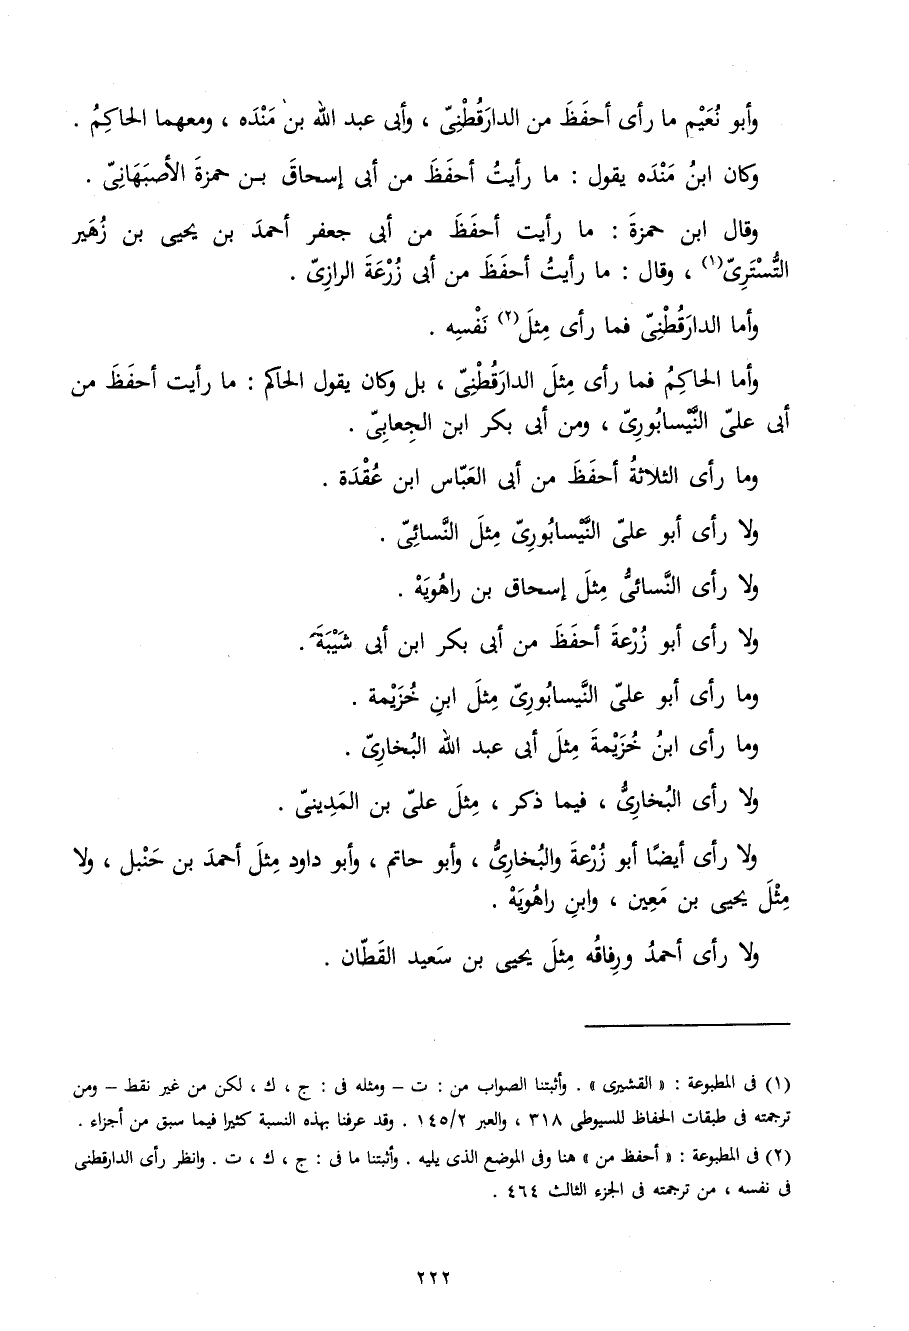 وأبو نُعَيْم ما رأى أحفَظَ من الدارَقُطْنِىّ ، وأبى عبد الله بن مَنْدَه ، ومعهما الحاكِمُ .
وكان ابنُ مَنْدَه يقول : ما رأيتُ أحفَظَ من أبى إسحاقَ بـن حمزةَ الأصبَهَانِىّ .
وقال ابن حمزةَ : ما رأيت أحفَظَ من أبى جعفر أحمدَ بن يحيى بن زُهَير
التُّسْتَرِىّ(١) ، وقال : ما رأيتُ أحفَظَ من أبى زُرْعَةَ الرازِىّ .
وأما الدارَقُطْنِىّ فما رأى مِثلَ(٢) نَفْسِه .
وأما الحاكِمُ فما رأى مِثلَ الدارَقُطْنِىّ ، بل وكان يقول الحاكم : ما رأيت أحفَظَ من
أبى علىّ النَّيْسابُورِىّ ، ومن أبى بكر ابن الجِعابِىّ .
وما رأى الثلاثةُ أحفَظَ من أبى العَبّاس ابن عُقْدَة .
ولا رأى أبو علىّ النَّيْسابُورِىّ مِثلَ النَّسائِىّ .
ولا رأى النَّسائىُّ مِثلَ إسحاق بن راهُويَهْ .
ولا رأى أبو زُرْعةَ أحفَظَ من أبى بكر ابن أبى شَيْبَةَ .
وما رأى أبو علىّ النَّيسابُورِىّ مِثلَ ابنِ خُزَيْمة .
وما رأى ابنُ خُزَيْمةَ مِثلَ أبى عبد الله البُخارِىّ .
ولا رأى البُخارِىُّ ، فيما ذكر ، مِثلَ علىّ بن المَدِينىّ .
ولا رأى أيضًا أبو زُرْعةَ والبُخارِىُّ ، وأبو حاتم ، وأبو داود مِثلَ أحمدَ بن حَنْبل ، ولا
مِثْلَ يحيى بن مَعِين ، وابنِ راهُويَهْ .
ولا رأى أحمدُ ورِفاقُه مِثلَ يحيى بن سَعيد القَطّان .
(١) فى المطبوعة : « القشيرى » . وأثبتنا الصواب من : ت – ومثله فى : ج ، ك ، لكن من غير نقط – ومن
ترجمته فى طبقات الحفاظ للسيوطى ٣١٨ ، والعبر ١٤٥/٢ . وقد عرفنا بهذه النسبة كثيرا فيما سبق من أجزاء .
(٢) فى المطبوعة : « أحفظ من » هنا وفى الموضع الذى يليه . وأثبتنا ما فى : ج ، ك ، ت . وانظر رأى الدارقطنى
فى نفسه ، من ترجمته فى الجزء الثالث ٤٦٤ .
٢٢٢